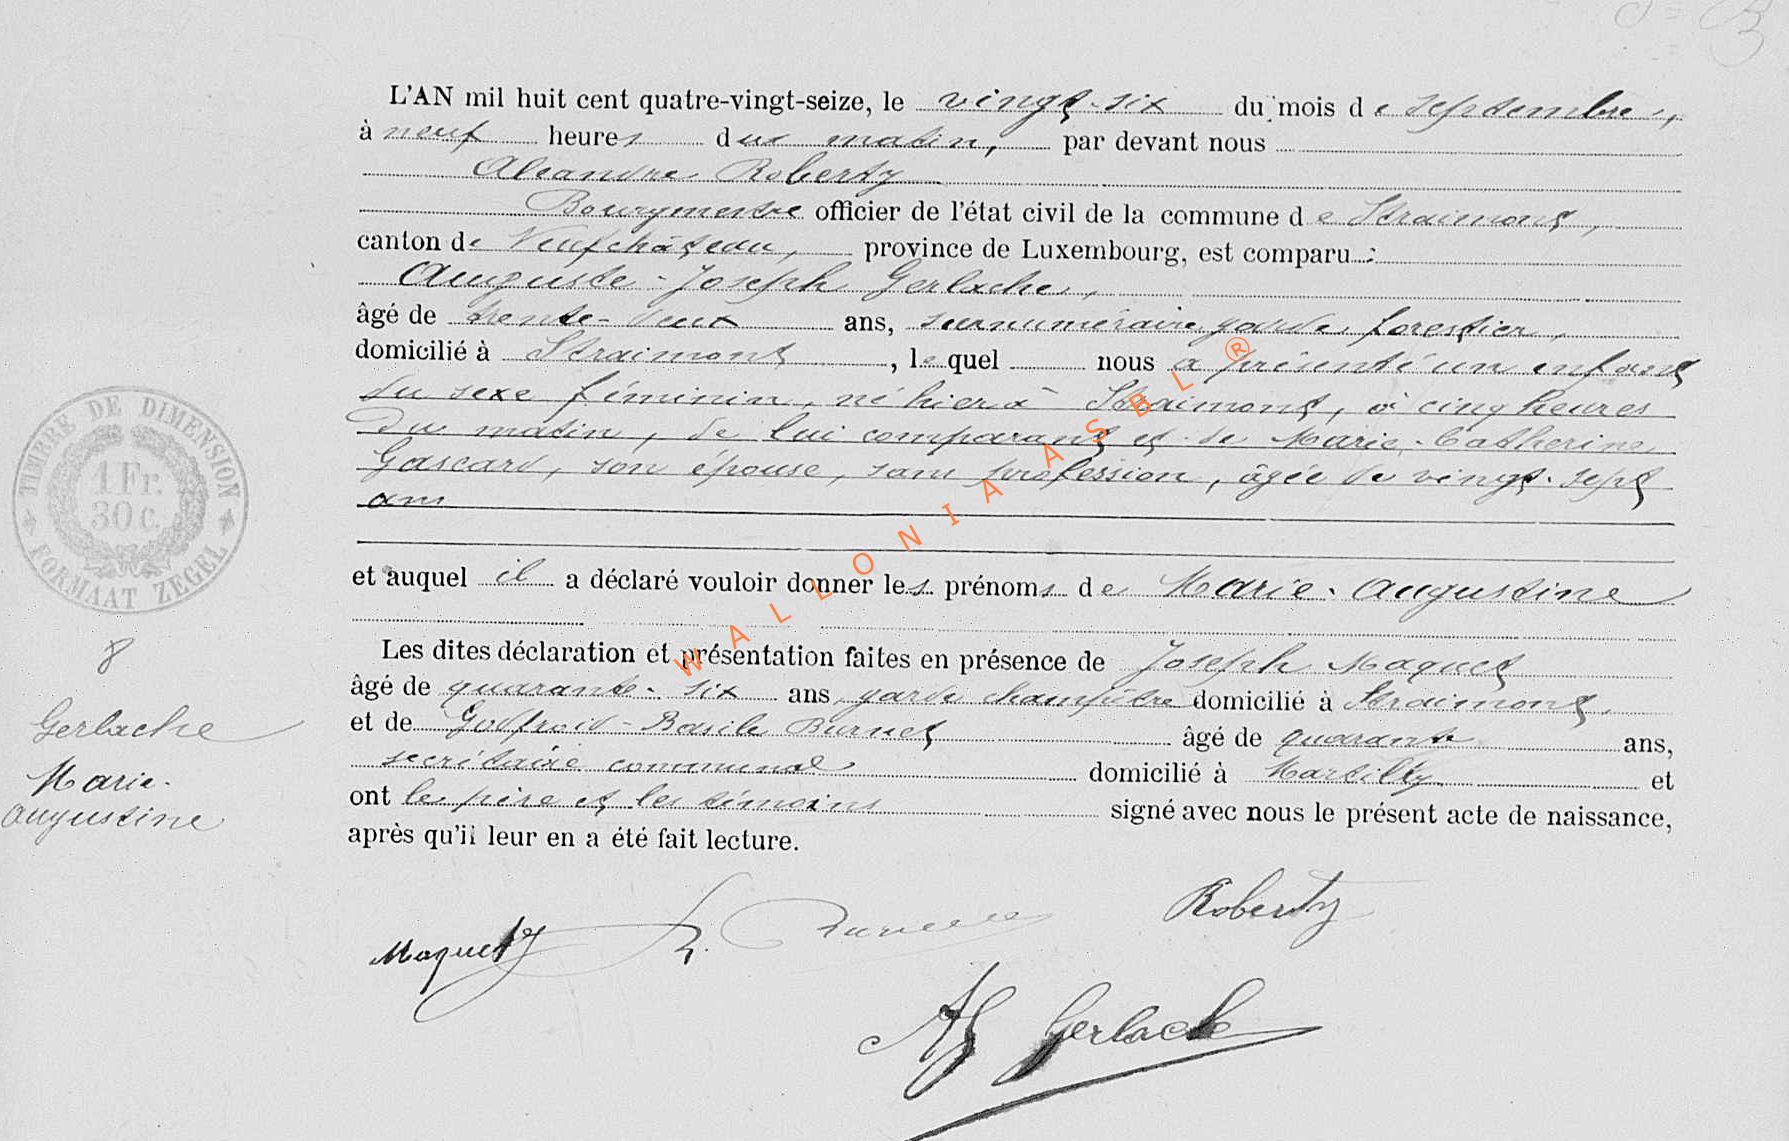 L'AN mil huit cent quatre-vingt-seize, le vingt-six du mois de septembre,
à neuf heures du matin, par devant nous
Alexandre Roberty
Bourgmestre officier de l'état civil de la commune de Straimont,
canton de Neufchâteau, province de Luxembourg, est comparu :
Auguste-Joseph Gerlache,
âgé de trente-deux ans, surnuméraire garde forestier,
domicilié à Straimont, lequel nous a présenté un enfant
du sexe féminin, né hier à Straimont, à cinq heures
du matin, de lui comparant et de Marie-Catherine
Gascard, son épouse, sans profession, âgée de vingt-sept
ans
et auquel il a déclaré vouloir donner les prénoms de Marie-Augustine
Les dites déclaration et présentation faites en présence de Joseph Maquet
âgé de quarante-six ans, garde champêtre domicilié à Straimont,
et de Godfroid-Basile Burnet âgé de quarante ans,
secrétaire communal domicilié à Martilly et
ont le père et les témoins signé avec nous le présent acte de naissance,
après qu'il leur en a été fait lecture.
TIMBRE DE DIMENSION
1 Fr.
30 c.
FORMAAT ZEGEL
8
Gerlache
Marie-
Augustine
Maquet J
Roberty
AJ Gerlache
WALLONIA ASBL ®